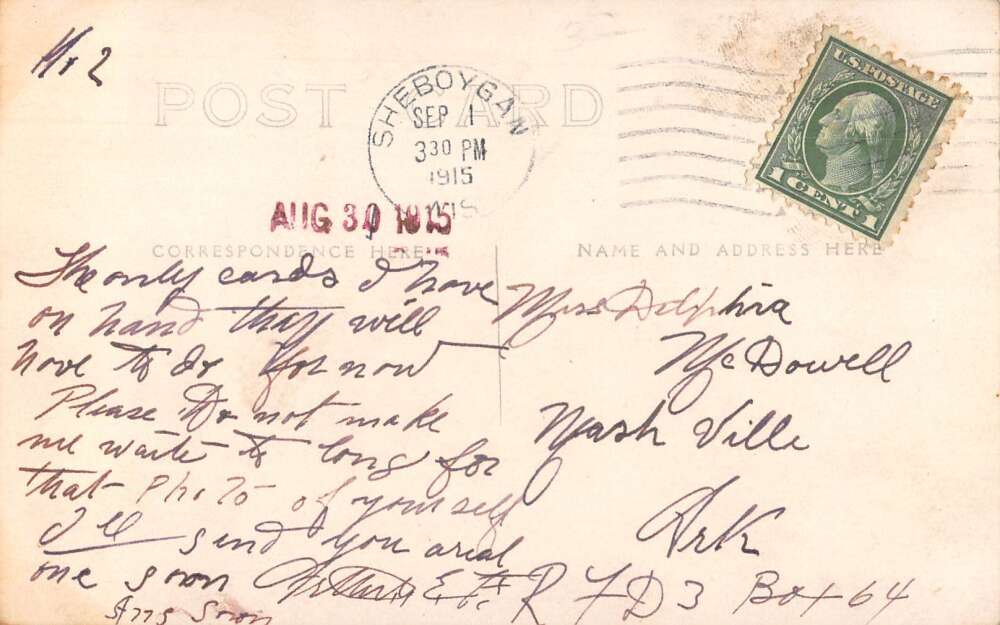 No 2
POST CARD
SHEBOYGAN
SEP 1
330 PM
1915
WIS
U.S. POSTAGE
1 CENT 1
AUG 30 1915
CORRESPONDENCE HERE
NAME AND ADDRESS HERE
The only cards I have
on hand they will
have to do for now
Please Do not make
me waite to long for
that Photo of yourself
I'll send you a real
one soon Arthur E. H.
Ans Soon
Miss Delphia
McDowell
Nash Ville
Ark
R F D 3 Box 64